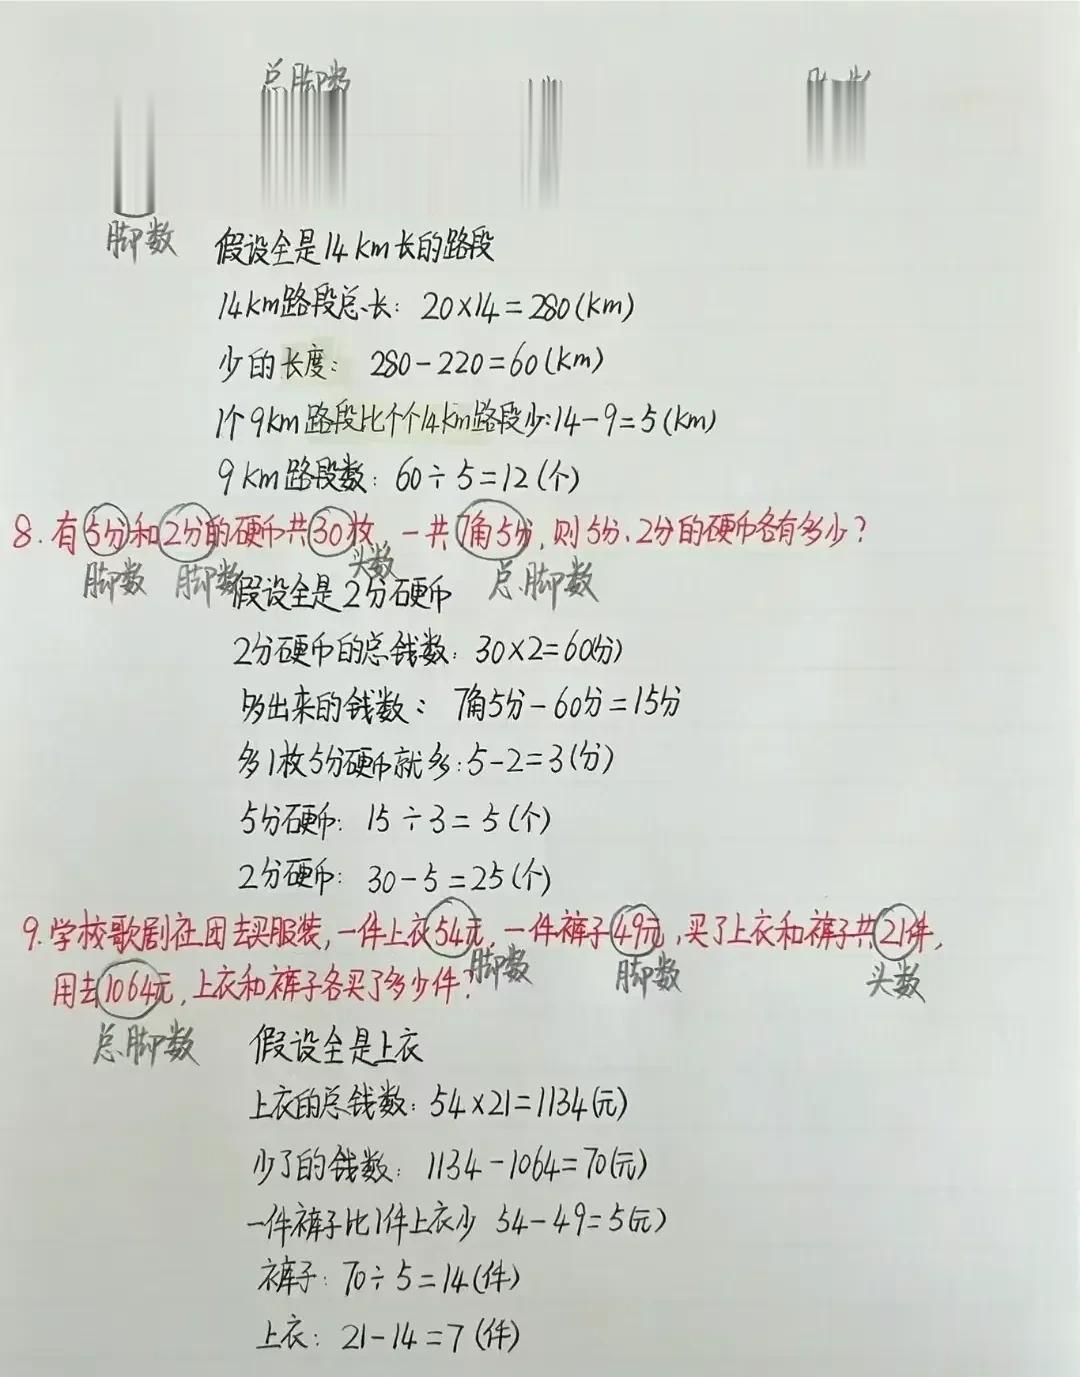 总脚数
脚数
假设全是14km长的路段
14km路段总长：20×14=280(km)
少的长度： 280-220=60(km)
1个9km路段比个个14km路段少:14-9=5(km)
9km路段数：60÷5=12(个)
8.有5分和2分的硬币共30枚，一共7角5分，则5分、2分的硬币各有多少？
脚数 脚数 头数 总脚数
假设全是2分硬币
2分硬币的总钱数：30×2=60(分)
多出来的钱数： 7角5分-60分=15分
多1枚5分硬币就多:5-2=3(分)
5分硬币： 15÷3=5(个)
2分硬币： 30-5=25(个)
9.学校歌剧社团去买服装，一件上衣54元，一件裤子49元，买了上衣和裤子共21件，
脚数 脚数 头数
用去1064元，上衣和裤子各买了多少件？
总脚数
假设全是上衣
上衣的总钱数：54×21=1134(元)
少了的钱数：1134-1064=70(元)
一件裤子比1件上衣少 54-49=5(元)
裤子：70÷5=14(件)
上衣：21-14=7(件)